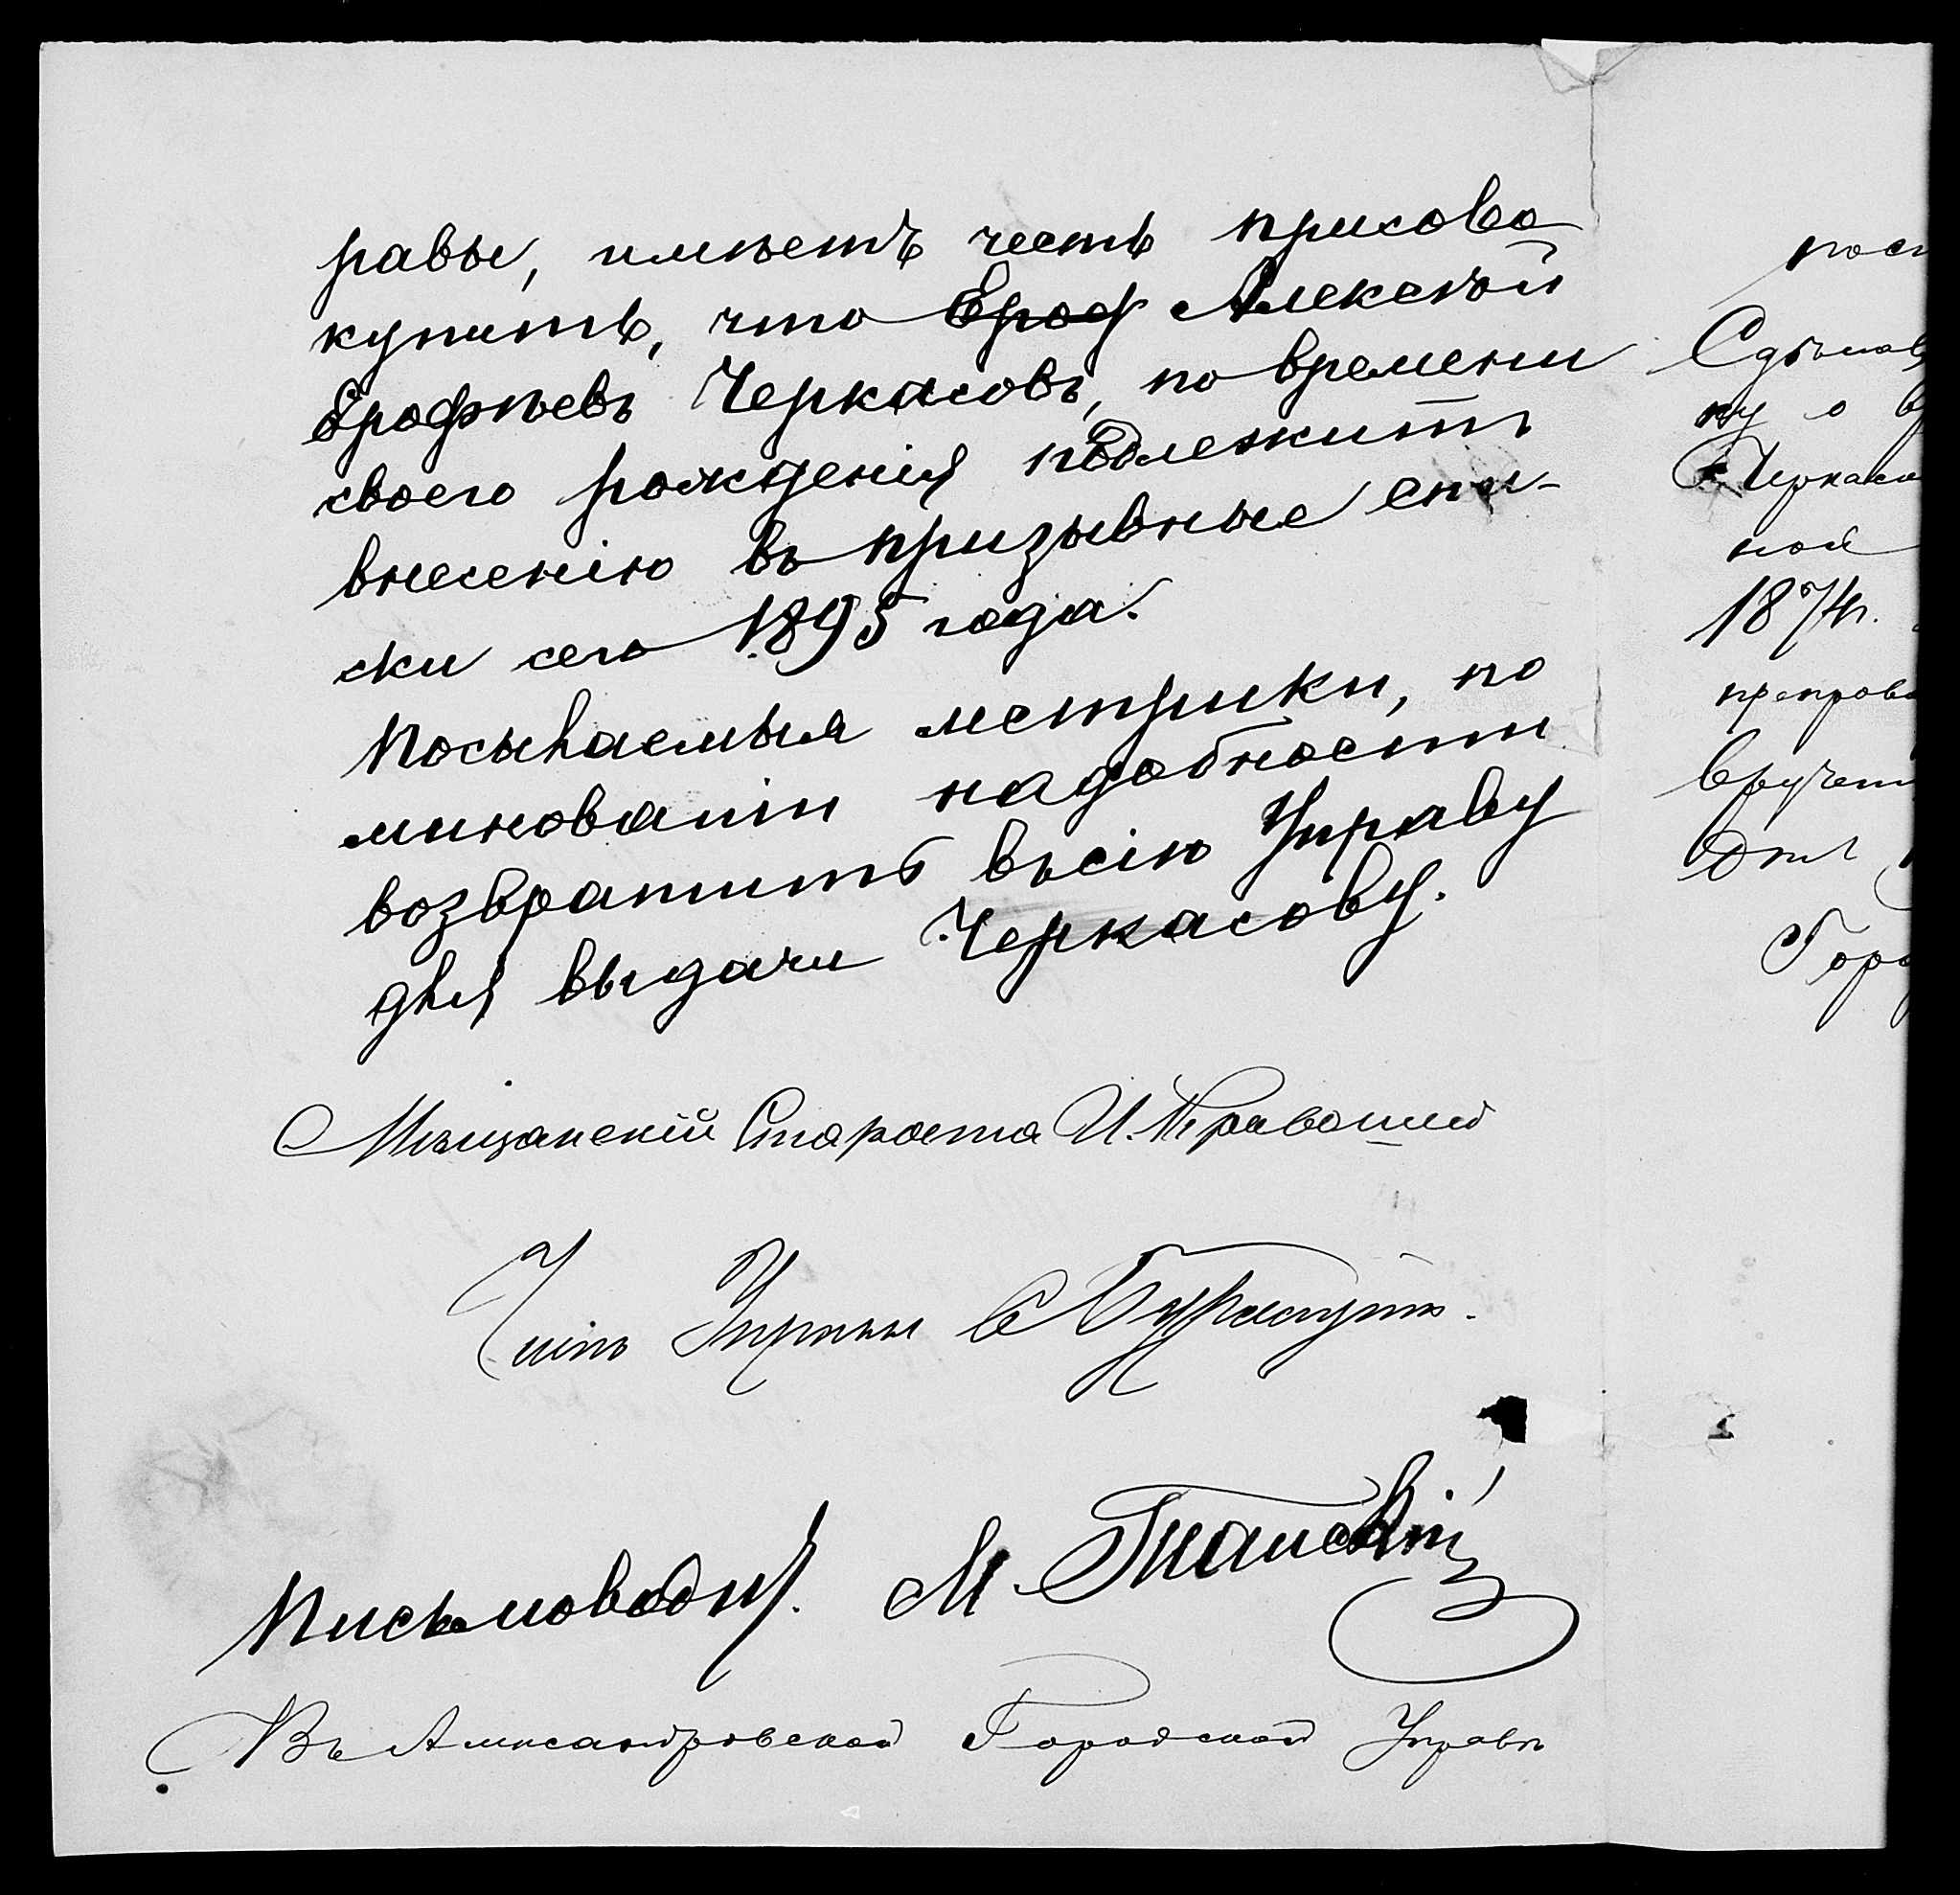 равы, имѣетъ честь присово
купить, что Ероф Алексѣй
Ерофѣевъ Черкасовъ, по времени
своего рожденія подлежитъ
внесенію въ призывные спи-
ски сего 1895 года.
Посылаемыя метрики, по
миновати надобности
возвратить въ сію Управу
для выдачи Черкасову.
Мѣщанскій Староста И.
Членъ Управы
Письмоводит. М.
Въ Александровской Городской Управѣ
Сдѣлав
ну о в
Черкасо
ной
1874 г.
препрово
вручит
для
Горо